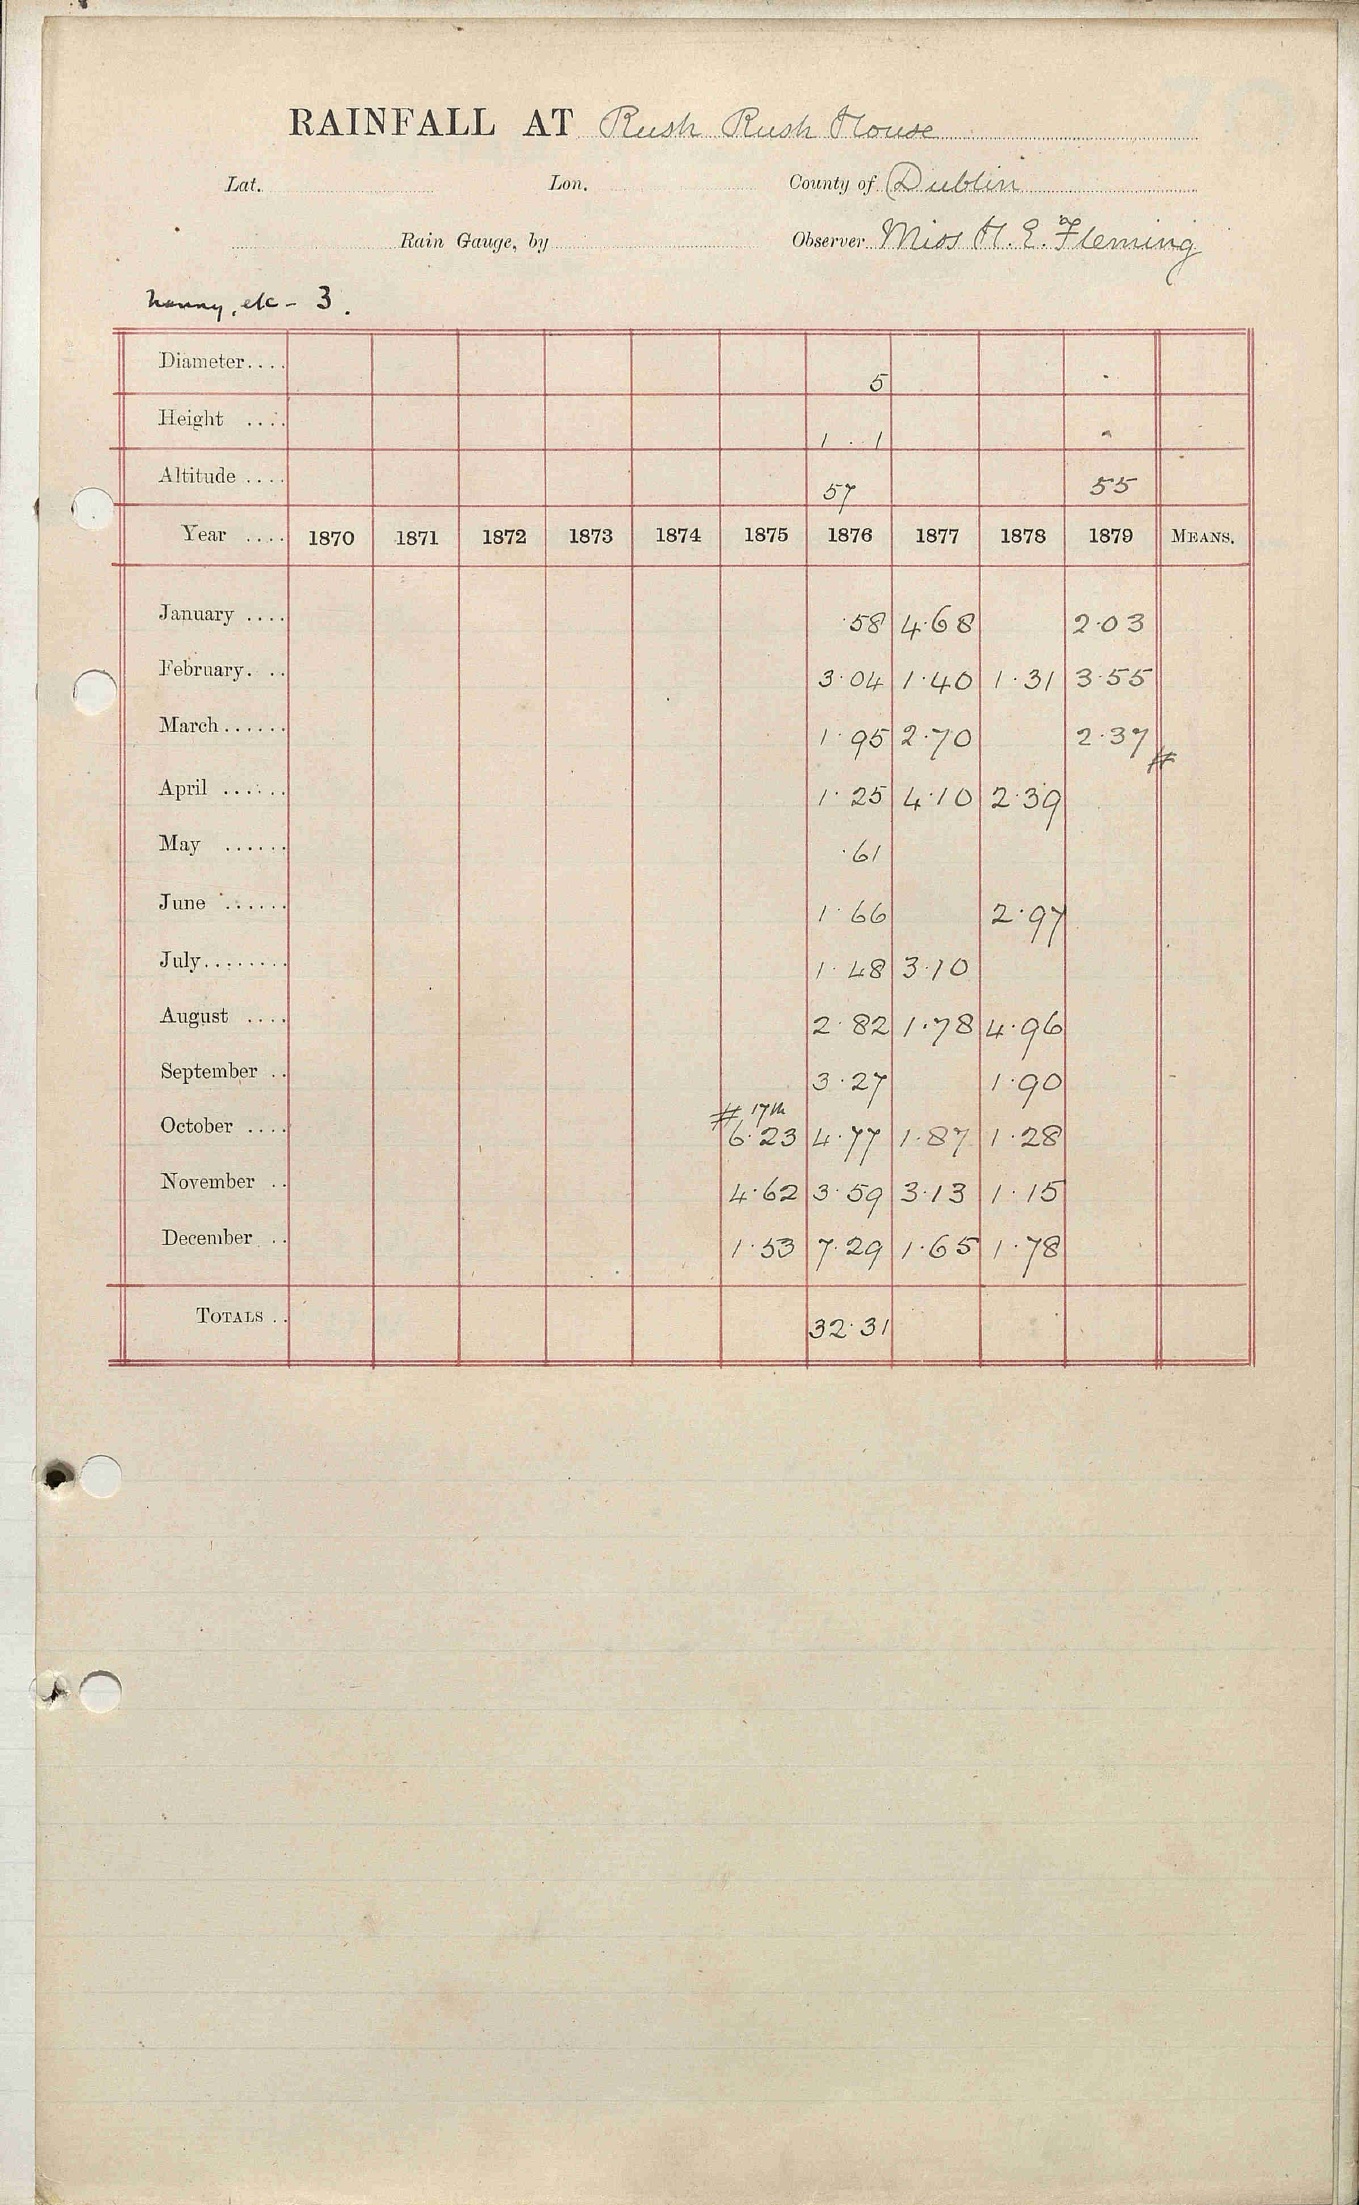 RAINFALL AT Rush Rush House
Lat. Lon. County of Dublin
Rain Gauge, by Observer Miss H. E. Fleming
Nanny, etc - 3.
Diameter.... 5
Height .... 1 . 1
Altitude .... 57 55
Year .... 1870 1871 1872 1873 1874 1875 1876 1877 1878 1879 MEANS.
January .... ·58 4·68 2·03
February. .. 3·04 1·40 1·31 3·55
March...... 1·95 2·70 2·37 #
April ...... 1·25 4·10 2·39
May ...... ·61
June ...... 1·66 2·97
July........ 1·48 3·10
August .... 2·82 1·78 4·96
September .. 3·27 1·90
# 17th
October .... 6·23 4·77 1·87 1·28
November .. 4·62 3·59 3·13 1·15
December .. 1·53 7·29 1·65 1·78
TOTALS .. 32·31